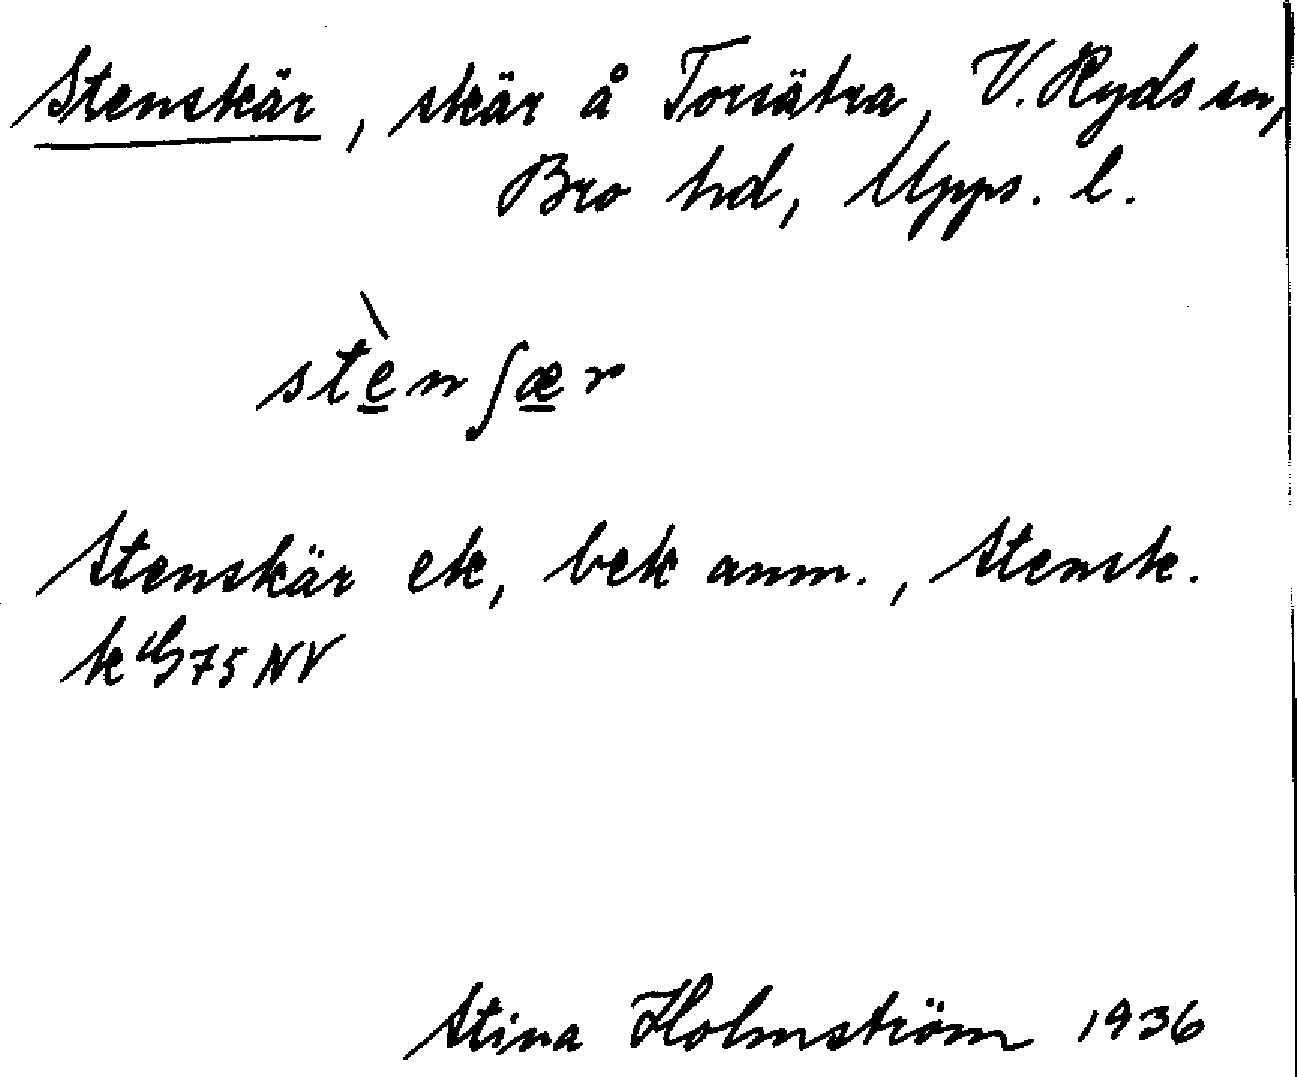 Stenskär, skär å Torsätra, V. Ryds sn,
Bro hd, Upps. l.
stèn ʃær
Stenskär ek, bek anm., Stensk.
k G75 NV
Stina Holmström 1936